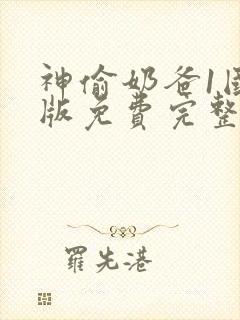 神偷奶爸1国
版免费完整
羅先港